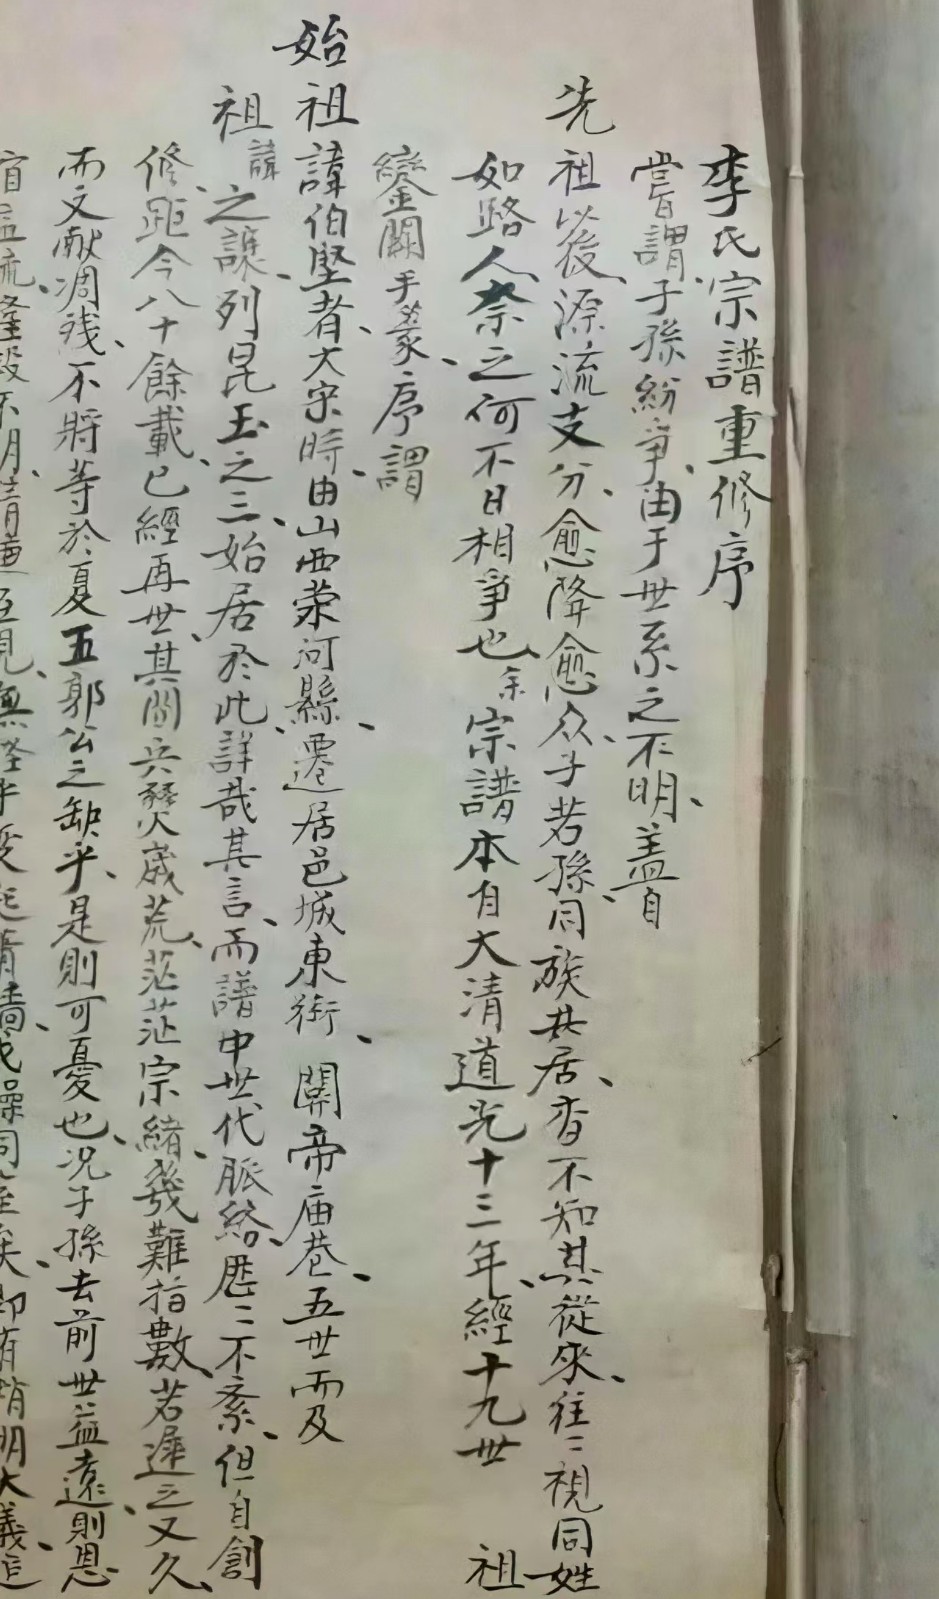 李氏宗譜重修序
嘗謂子孫紛爭由于世系之不明、盖自
先祖以後、源流支分、愈降愈众、子若孫、同族共居、杳不知其從來、往〻視同姓
如路人、奈之何不日相爭也、余宗譜本自大清道光十三年、經十九世 祖
鑾闗手篆、序謂
始祖諱伯堅者、大宋時、由山西荣河縣、遷居邑城東街、關帝庙巷、五世而及
祖諱之譔、列昆玉之三、始居於此、詳哉其言、而譜中世代脈絡、歴〻不紊、但自創
修、距今八十餘載、已經再世、其間兵燹歲荒、茫茫宗緒、幾難指數、若遲之又久、
而文献凋残、不將等於夏五郭公之缺乎、是則可憂也、况子孫去前世益遠、則恩